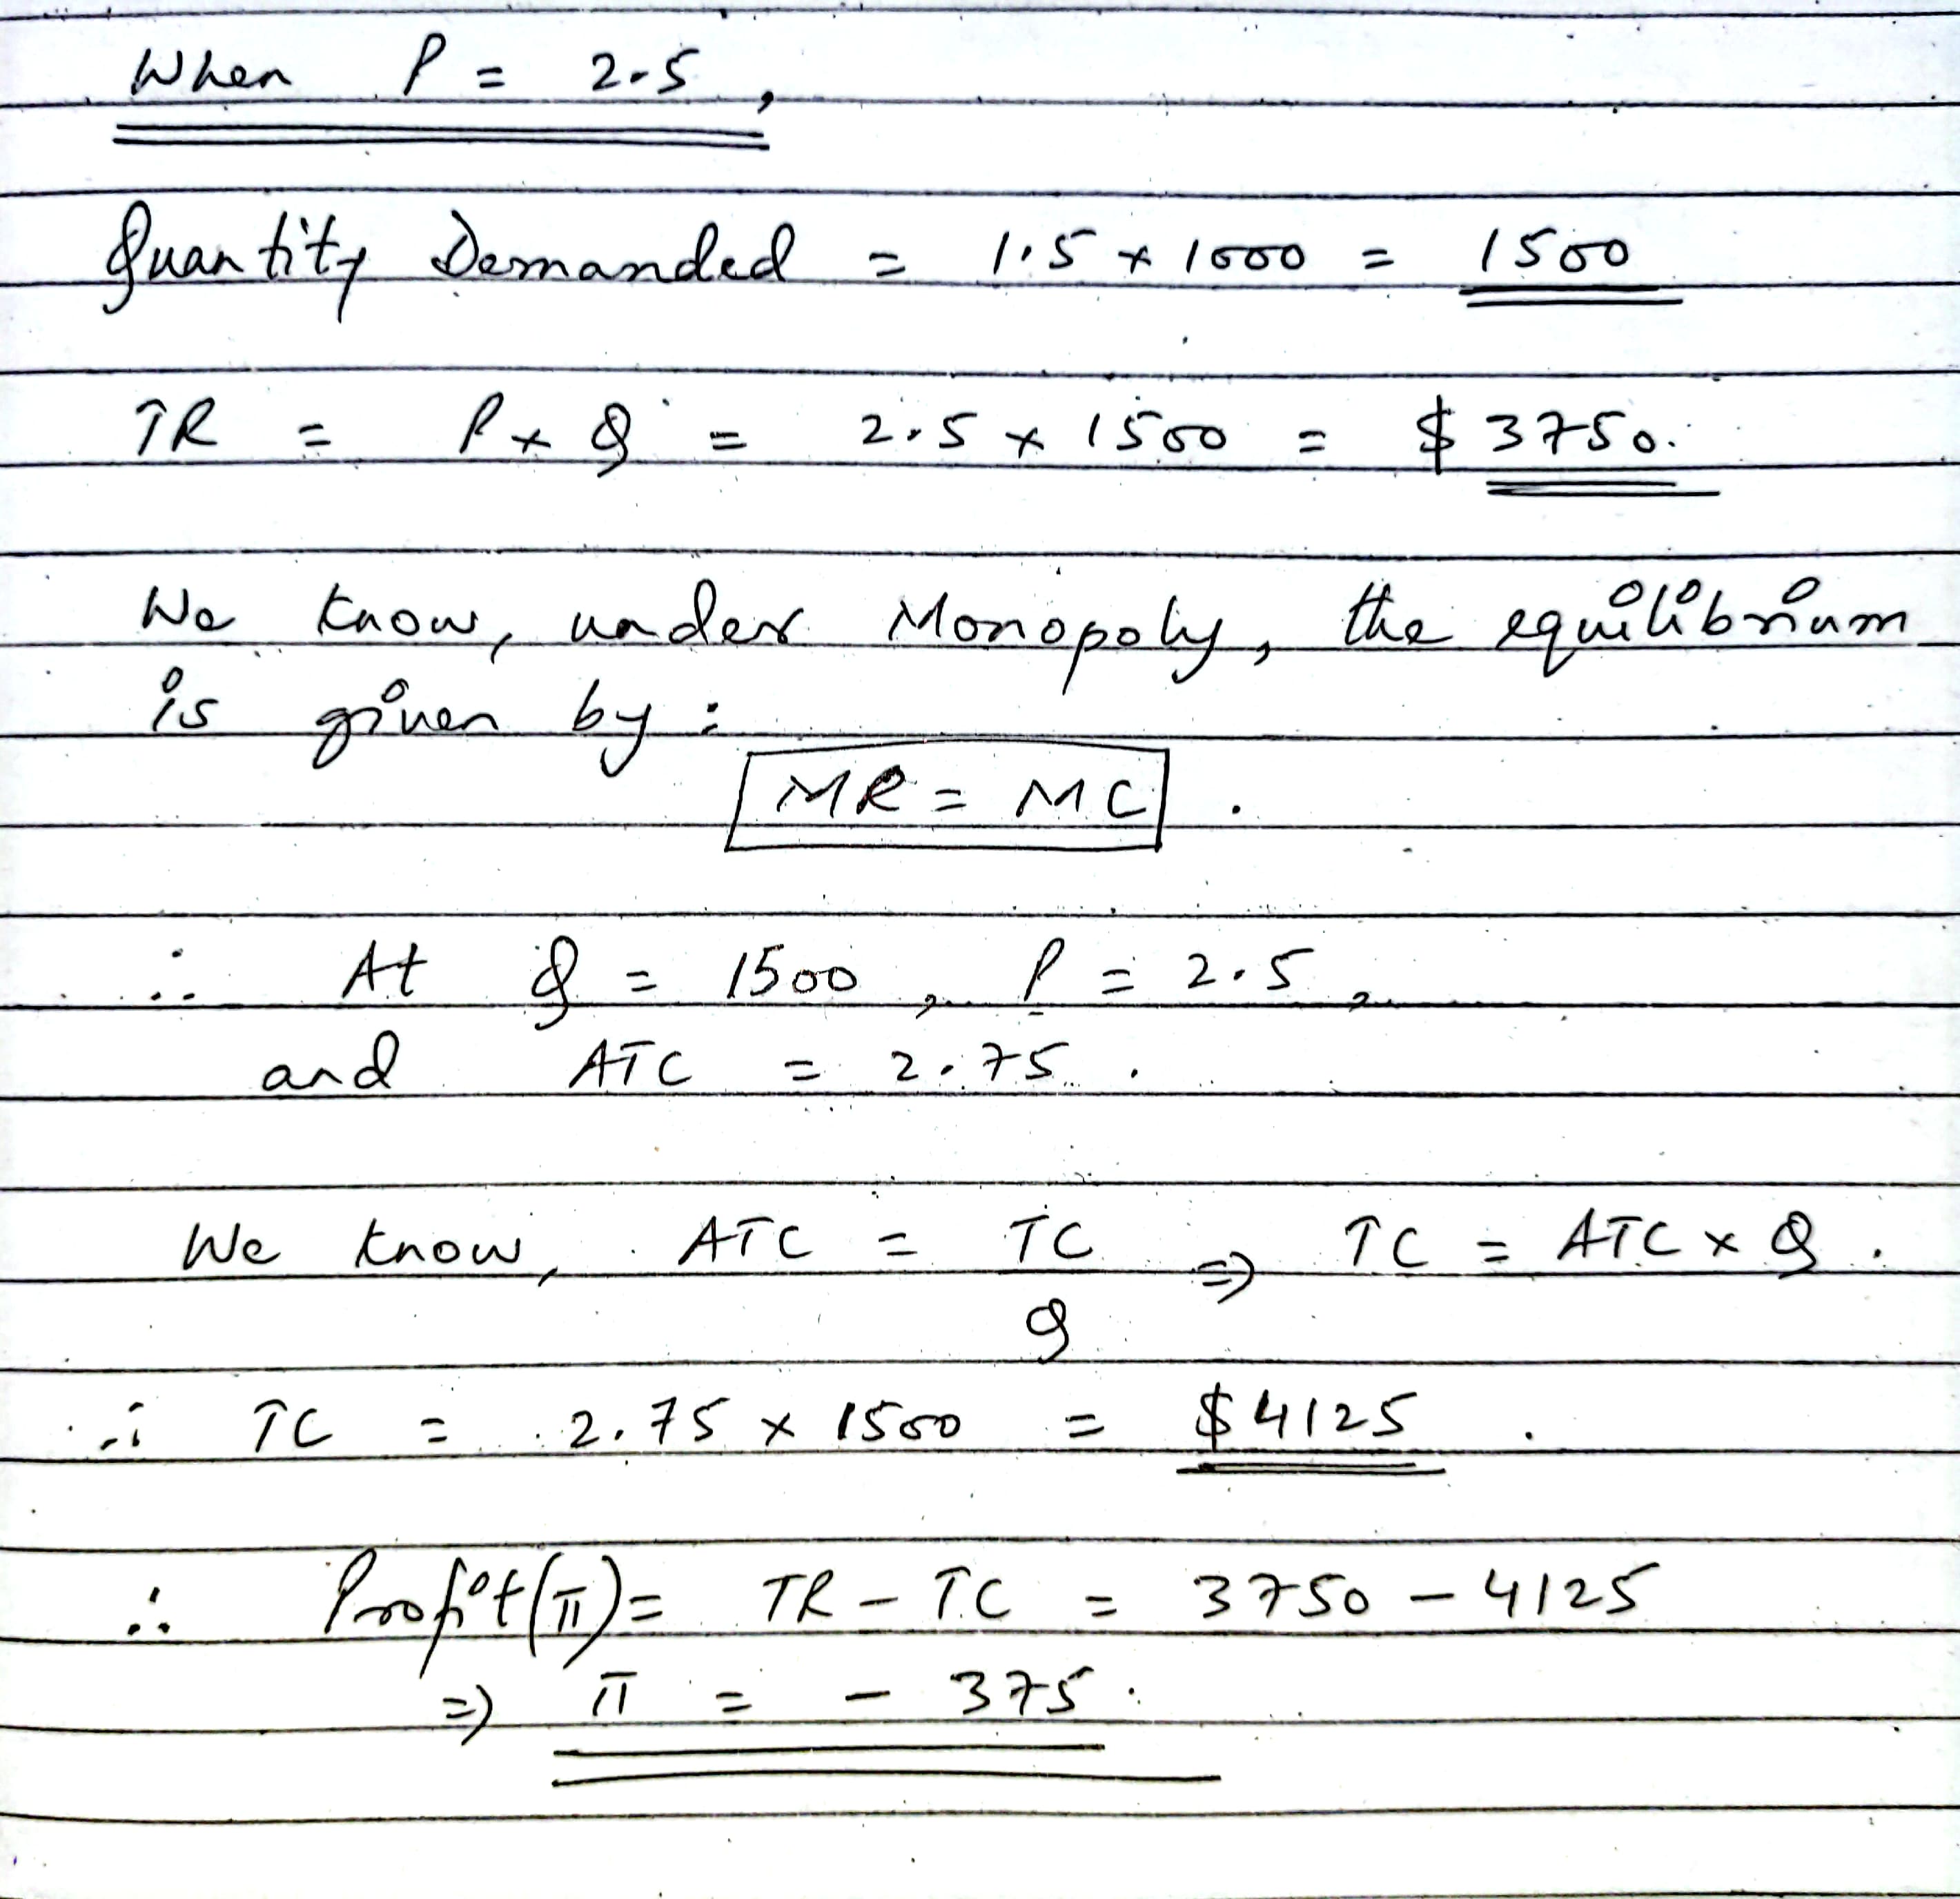 When P = 2.5,
Quantity Demanded = 1.5 × 1000 = 1500
TR = P × Q = 2.5 × 1500 = $3750.
We know, under Monopoly, the equilibrium
is given by:
MR = MC.
∴ At Q = 1500, P = 2.5,
and ATC = 2.75.
We know, ATC = TC/Q ⇒ TC = ATC × Q.
∴ TC = 2.75 × 1500 = $4125.
∴ Profit(π) = TR – TC = 3750 – 4125
⇒ π = – 375.